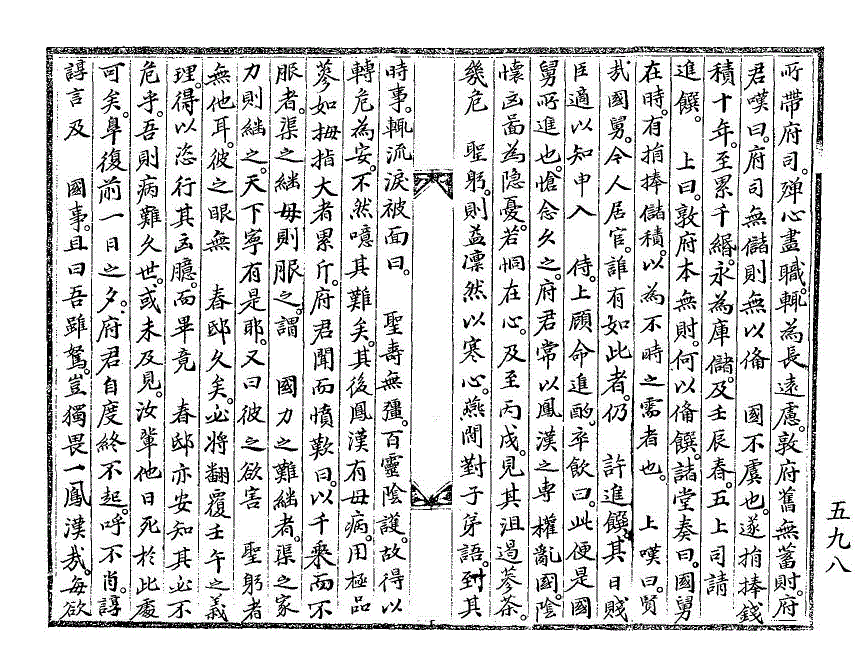 所帶府司。殫心盡職。輒為長遠慮。敦府舊無蓄財。府
君嘆曰。府司無儲則無以俻 國不虞也。遂捐捧錢
積十年。至累千緡。永為庫儲。及壬辰春。五上司請
進饌。 上曰。敦府本無財。何以俻饌。諸堂奏曰。國舅
在時。有捐捧儲積。以為不時之需者也。 上嘆曰。賢
哉國舅。今人居官。誰有如此者。仍 許進饌。其日賤
臣適以知申入 侍。上顧命進酌。卒飲曰。此便是國
舅所進也。愴念久之。府君常以鳳漢之專權亂國。陰
懷凶啚為隐憂。若恫在心。及至丙戌。見其沮遏蔘茶。
幾危 聖躬。則益凛然以寒心。燕閒對子弟語。到其
時事。輒流淚被面曰。 聖壽無疆。百靈陰護。故得以
轉危為安。不然噫其難矣。其後鳳漢有母病。用極品
蔘如拇指大者累斤。府君聞而憤歎曰。以千乘而不
服者。渠之継母則服之。謂 國力之難継者。渠之家
力則継之。天下寧有是耶。又曰彼之欲害 聖躬者
無他耳。彼之眼無 春邸久矣。必將翻覆壬午之義
理。得以恣行其凶臆。而畢竟 春邸亦安知其必不
危乎。吾則病難久世。或未及見。汝輩他日死於此處
可矣。臯復前一日之夕。府君自度終不起。呼不肖。諄
諄言及 國事。且曰吾雖駑。豈獨畏一鳳漢哉。每欲
五九八